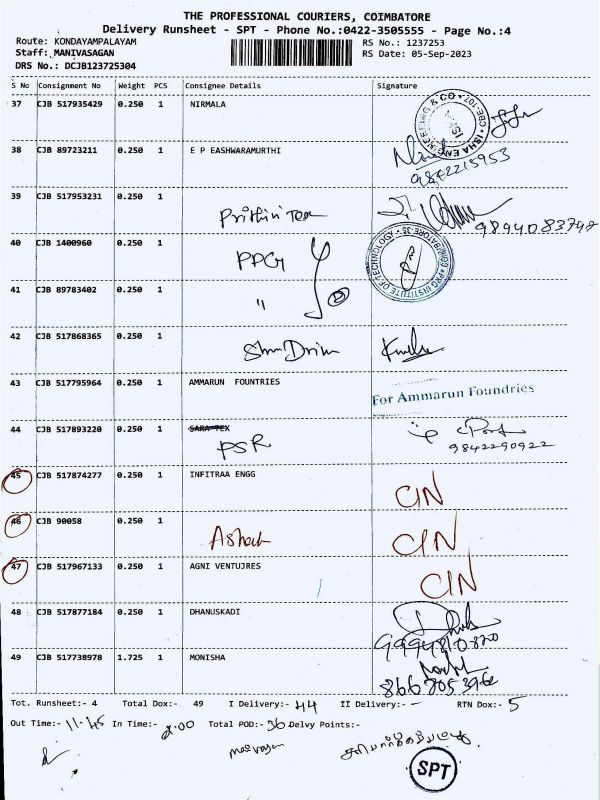 THE PROFESSIONAL COURIERS, COIMBATORE
Delivery Runsheet - SPT - Phone No.:0422-3505555 - Page No.:4
Route: KONDAYAMPALAYAM
RS No.: 1237253
Staff: MANIVASAGAN
RS Date: 05-Sep-2023
DRS No.: DCJB123725304
S No Consignment No Weight PCS Consignee Details Signature
37 CJB 517935429 0.250 1 NIRMALA
38 CJB 89723211 0.250 1 E P EASHWARAMURTHI
9842215953
39 CJB 517953231 0.250 1
9894083748
40 CJB 1400960 0.250 1 PPG
41 CJB 89783402 0.250 1 "
42 CJB 517868365 0.250 1
43 CJB 517795964 0.250 1 AMMARUN FOUNTRIES For Ammarun Foundries
44 CJB 517893220 0.250 1 SARA TEX
PSR 9842290922
45 CJB 517874277 0.250 1 INFITRAA ENGG CIN
46 CJB 90058 0.250 1 CIN
47 CJB 517967133 0.250 1 AGNI VENTUJRES CIN
48 CJB 517877184 0.250 1 DHANUSKADI
9994810820
49 CJB 517738978 1.725 1 MONISHA
Tot. Runsheet:- 4 Total Dox:- 49 I Delivery:- 44 II Delivery:- - RTN Dox:- 5
Out Time:- 11.45 In Time:- 2.00 Total POD:- 36 Delvy Points:-
SPT